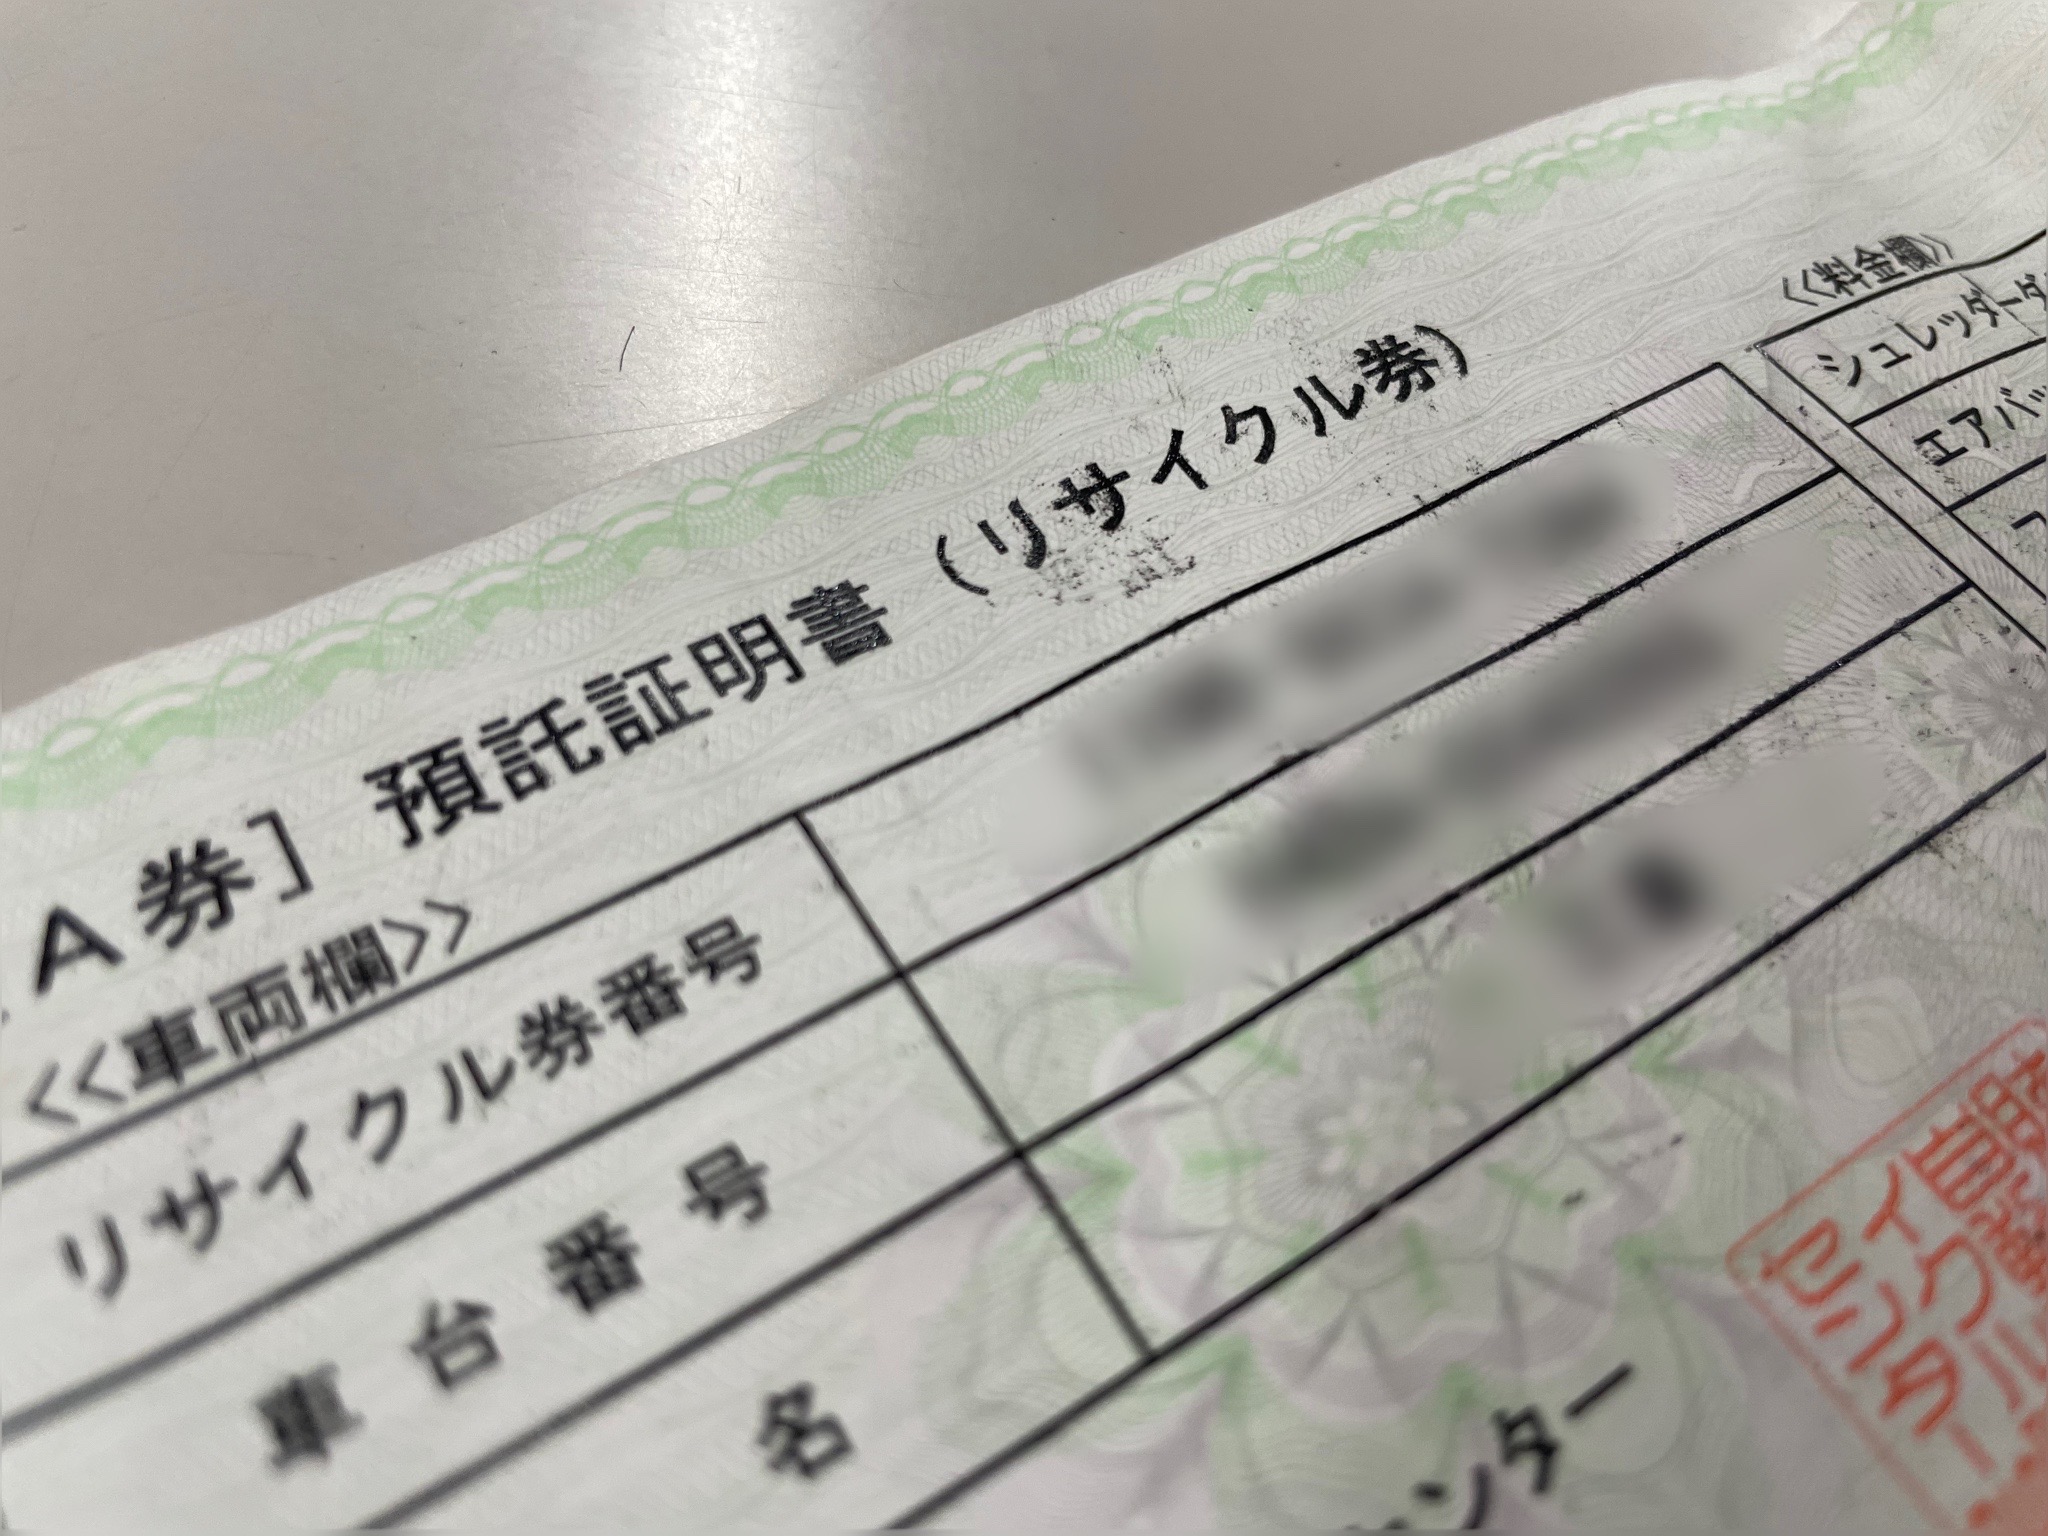 A券］ 預託証明書（リサイクル券）
<<車両欄>>
リサイクル券番号
車台番号
名
ンター
<<料金欄>>
シュレッダーダ
エアバッ
イクル
センター